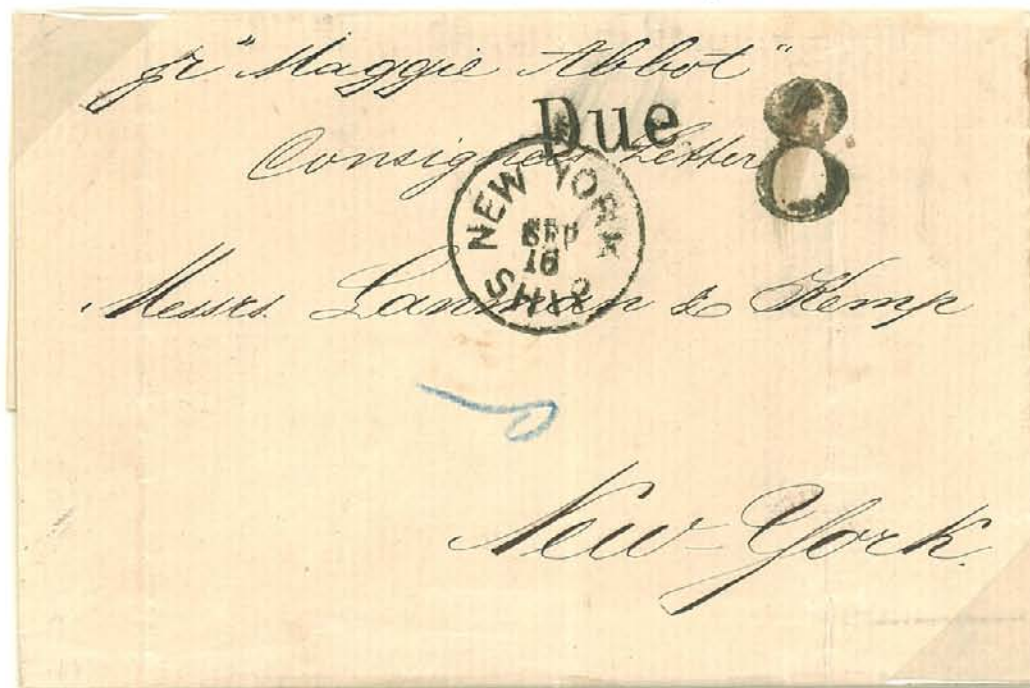 pr "Maggie Abbot"
Due 8
Consignees Letter
NEW YORK
SEP
16
SHIP
Messrs. Lanman & Kemp
New-York.